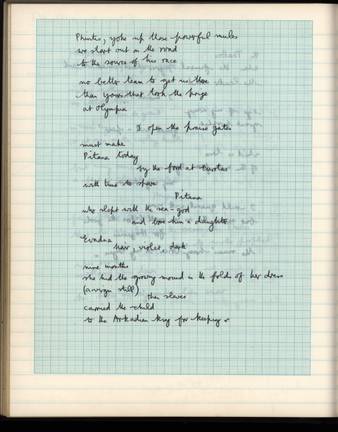 Phintis, yoke up those powerful mules
we start out on the road
to the source of his race
no better team to get us there
than yours that took the prize
at Olympia
I open the praise gates
must make
Pitana today
by the ford at Eurotas
with time to spare
Pitana
who slept with the sea-god
and bore him a daughter
Evadna
hair, violet, dark
nine months
she hid the growing mound in the folds of her dress
(a virgin still)
then slaves
carried the child
to the Arkadian king for keeping